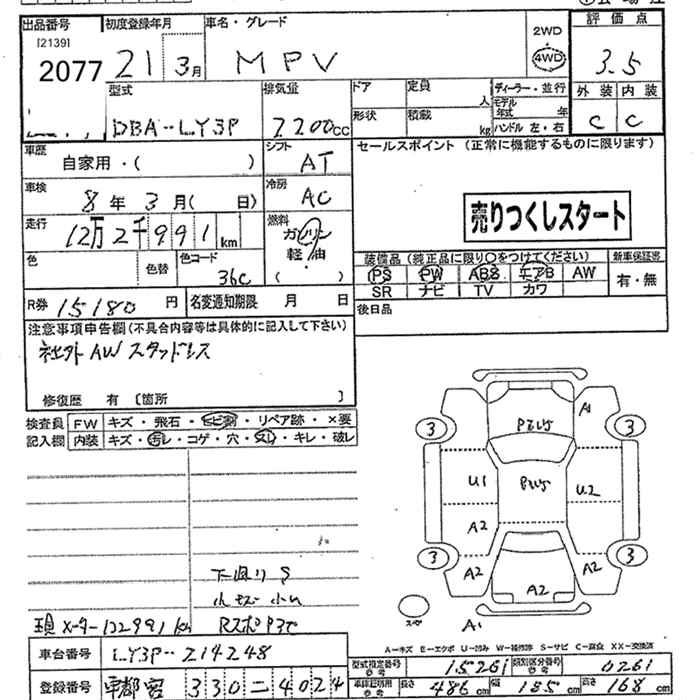 出品番号 初度登録年月 車名・グレード 評価点
[2139]
2077 21 3月 MPV 2WD 4WD 3.5
型式 排気量 ドア 定員 人 ディーラー・並行 外装 内装
DBA-LY3P 2200cc 形状 積載 kg モデル年式 年 ハンドル 左・右 C C
車歴 自家用・( ) シフト AT セールスポイント (正常に機能するものに限ります)
車検 8年 3月( 日) 冷房 AC
売りつくしスタート
走行 12万2千991km 燃料 ガソリン 軽油 ( )
色 色替 色コード 36C
装備品 (純正品に限り○をつけてください) 新車保証書
PS PW ABS エアB AW 有・無
SR ナビ TV カワ
R券 15180円 名変通知期限 月 日 後日品
注意事項申告欄(不具合内容等は具体的に記入して下さい)
社外AW スタッドレス
修復歴 有 [箇所 ]
検査員記入欄 FW キズ・飛石・ヒビ割・リペア跡・×要
内装 キズ・汚レ・コゲ・穴・スレ・キレ・破レ
A1
3 3
U1 U2
A2
3 3
A2 A2 A2
スペ A1
下廻りS
小キズ 小凹
現メーター122991km
A-キズ E-エクボ U-凹み W-補修跡 S-サビ C-腐食 XX-交換済
車台番号 LY3P-214248 型式指定番号 15261 類別区分番号 0261
登録番号 330 4024 長さ 486cm 幅 185cm 高さ 168cm